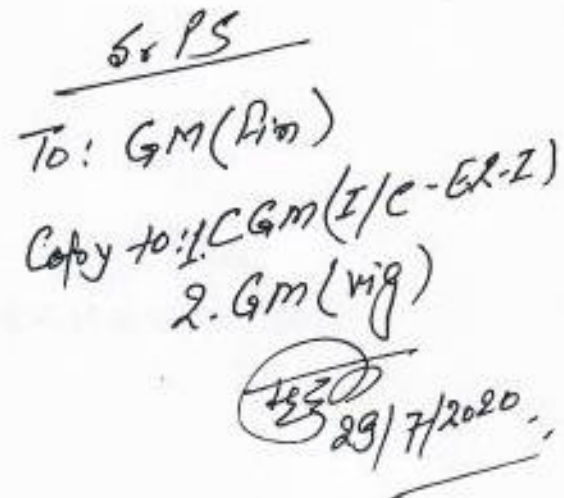 Sr PS
To: GM(Fin)
Copy to: 1. CGM(I/C-E&I)
2. GM(vig)
29/7/2020